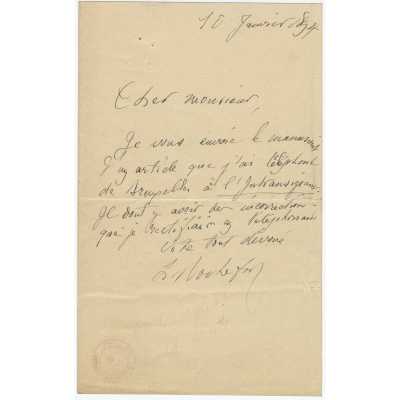 10 Janvier 1894
Cher monsieur,
Je vous envoie le manuscrit
d'un article que j'ai téléphoné
de Bruxelles à l'Intransigeant
Il doit y avoir des incorrections
que je rectifiais en téléphonant
Votre tout dévoué
H. Rochefort